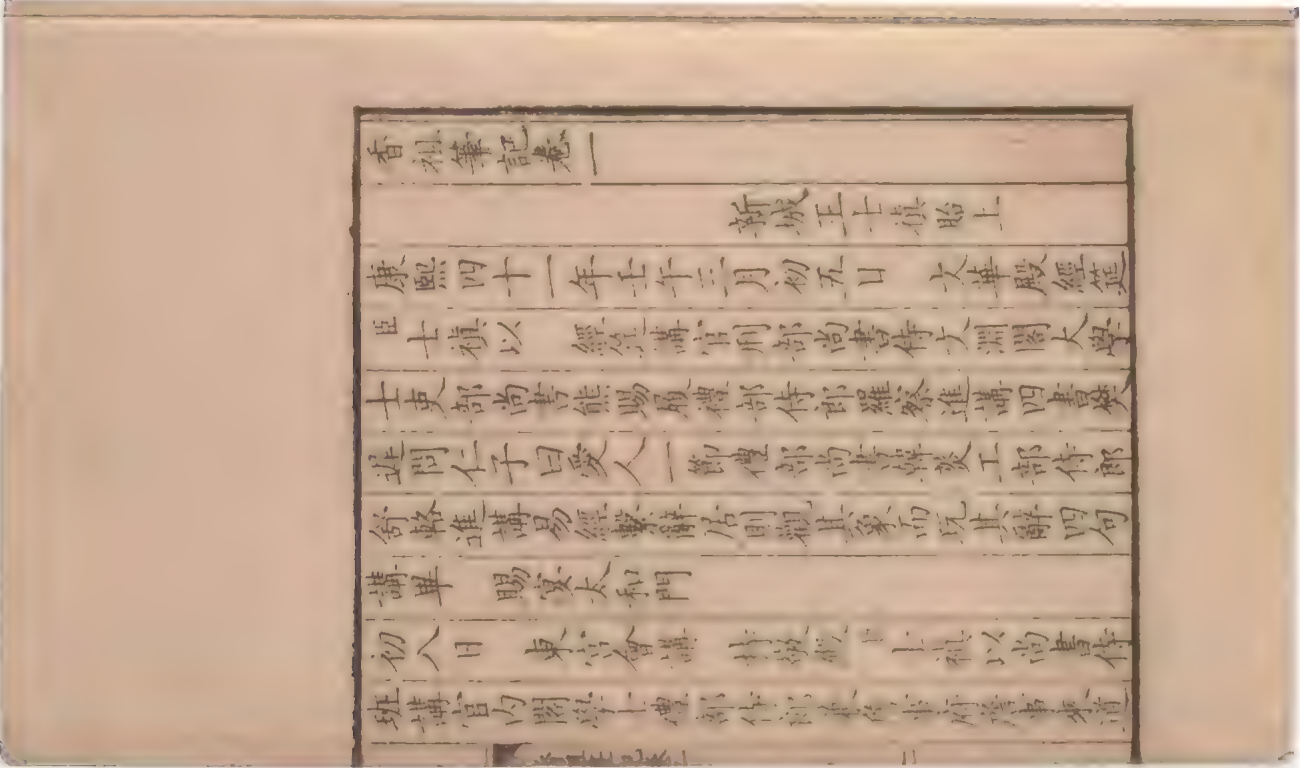 香祖筆記卷一
新城王士禎貽上
康熙四十一年壬午三月初五日　文華殿經筵
臣士禎以　經筵講官刑部尚書侍文淵閣大學
士吏部尚書熊賜履禮部侍郎羅察進講四書樊
遲問仁子曰愛人一節禮部尚書韓菼工部侍郎
舒輅進講易經繫辭居則觀其象而玩其辭四句
講畢　賜宴太和門
初八日　東宮會講　士禎以尚書侍
班講官內閣學士禮部侍郎兼詹事府詹事來道